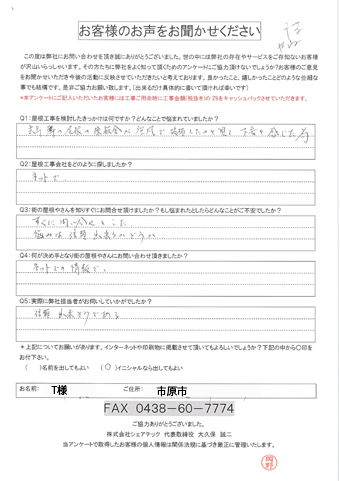 お客様のお声をお聞かせください
この度は弊社にお問い合わせを頂き誠にありがとうございました。世の中には弊社の存在やサービスをご存知ないお客様
が沢山いらっしゃいます。その方たちに弊社をよく知って頂くためのアンケートにご協力頂けないでしょうか?お客様のご意見
をお聞かせいただき今後の活動に反映させていただきたいと考えております。良かったこと、嬉しかったことどのような些細な
事でも結構です。是非ご協力お願い致します。(出来るだけ具体的に書いて頂ければ幸いです)
*本アンケートにご記入いただいたお客様には工事ご用命時に工事金額(税抜き)の2%をキャッシュバックさせていただきます。
Q1:屋根工事を検討したきっかけは何ですか?どんなことで悩まれていましたか?
Q2:屋根工事会社をどのように探しましたか?
ネットで、
Q3:街の屋根やさんを知りすぐにお問合せ頂けましたか?もし悩まれたとしたらどんなことがご不安でしたか?
すぐに問い合わせをした
悩みは信頼出来るかどうか
Q4:何が決め手となり街の屋根やさんにお問い合わせ頂きましたか?
ネットでの情報で、
Q5:実際に弊社担当者がお伺いしていかがでしたか?
信頼出来そうである
*上記についてお願いがあります。インターネットや印刷物に掲載させて頂いてもよろしいでしょうか?下記の中から〇印を
お付下さい。
( )名前を出してもよい (〇)イニシャルなら出してもよい
お名前: T様 ご住所: 市原市
FAX 0438-60-7774
ご協力ありがとうございました。
株式会社シェアテック 代表取締役 大久保 誠二
当アンケートで取得したお客様の個人情報は関係法規に基づき厳正に管理いたします。
岡野